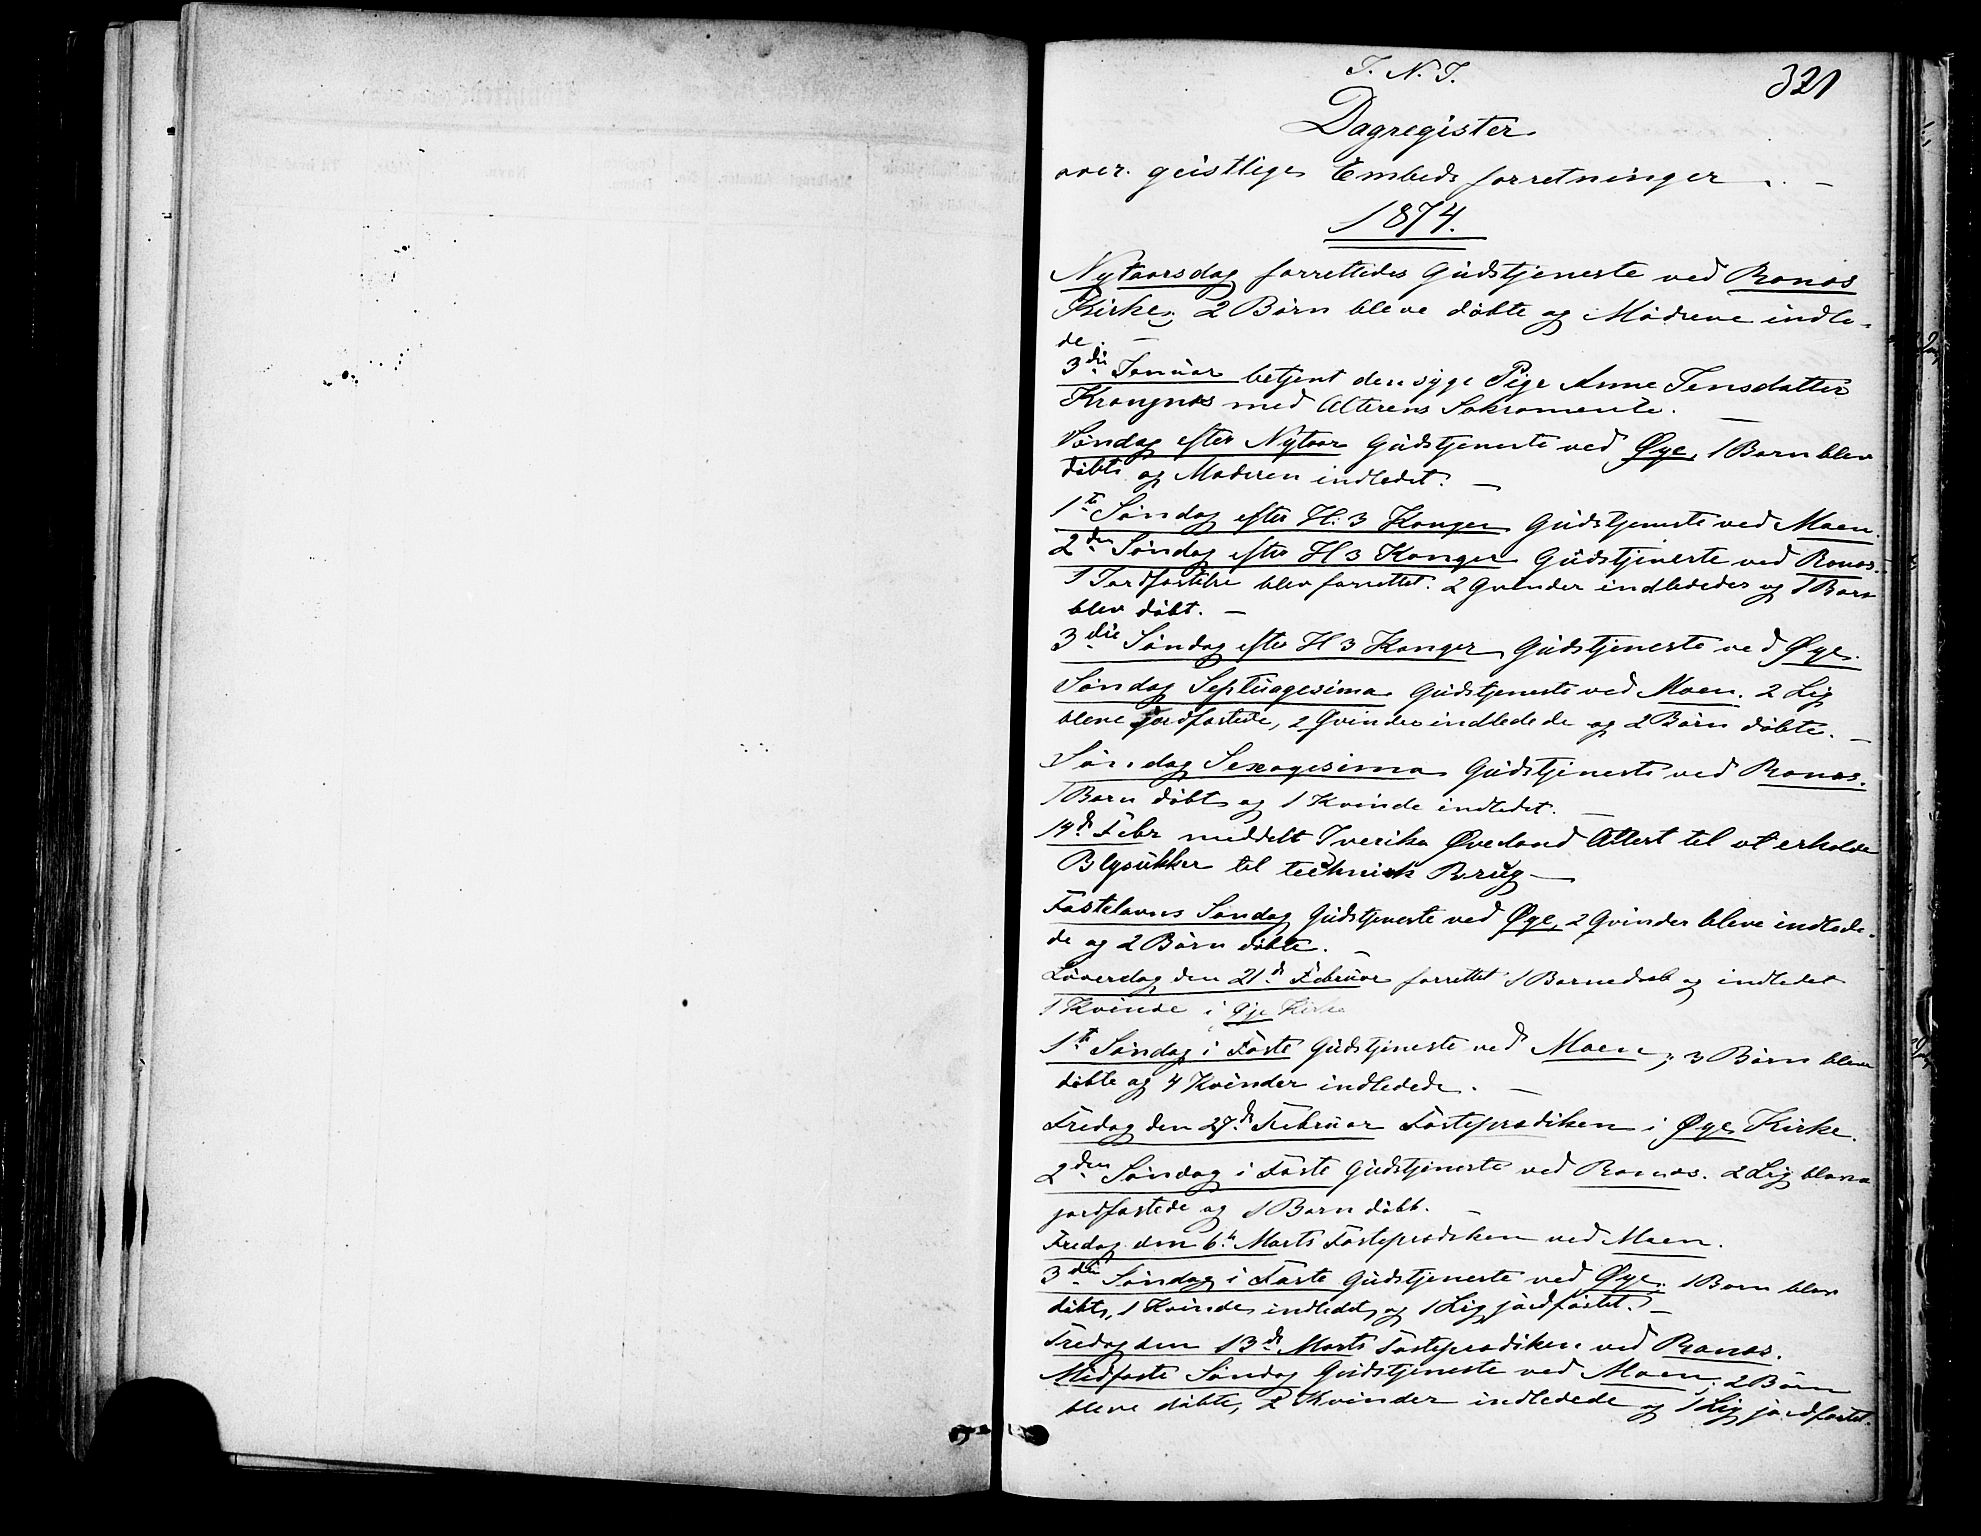 I. N. J.
321
Dagregister
over geistlige Embedsforretninger. —
1874.
Nytaarsdag forrettedes Gudstjeneste ved Ranæs
Kirke; 2 Børn bleve døbte og Mødrene indle-
de. —
3die Januar betjent den syge Pige Anne Jensdatter
Krangnæs med Alterens Sakramente. —
Søndag efter Nytaar Gudstjeneste ved Øye, 1 Barn blev
døbt og Moderen indledet. —
1te Søndag efter H. 3 Konger Gudstjeneste ved Moen.
2den Søndag efter H 3 Konger Gudstjeneste ved Ranæs.
1 Jordfæstelse blev forrettet. 2 Qvinder indlededes og 1 Barn
blev døbt. —
3die Søndag efter H 3 Konger Gudstjeneste ved Øye.
Søndag Septuagesima Gudstjeneste ved Moen. 2 Lig
bleve Jordfæstede, 2 Qvinder indledede og 2 Børn døbte. —
Søndag Sexagesima Gudstjeneste ved Ranæs.
1 Barn døbt og 1 Kvinde indledet. —
14d Febr meddelt Iverika Øveland Attest til at erholde
Blysukker til technisk Brug —
Fastelavns Søndag Gudstjeneste ved Øye, 2 Qvinder bleve indlede-
de og 2 Børn døbte. —
Løverdag den 21d Februar forrettet 1 Barnedaab og indledet
1 Kvinde i Øje Kirke
1te Søndag i Faste Gudstjeneste ved Moen; 3 Børn bleve
døbte og 4 Kvinder indledede. —
Fredag den 27d Februar Fasteprædiken i Øye Kirke.
2den Søndag i Faste Gudstjeneste ved Ranæs. 2 Lig bleve
jordfæstede og 1 Barn døbt. —
Fredag den 6te Marts Fasteprædiken ved Moen.
3die Søndag i Faste Gudstjeneste ved Øye. 1 Barn blev
døbt, 1 Kvinde indledet og 1 Lig jordfæstet. —
Fredag den 13d Marts Fasteprædiken ved Ranæs.
Midfaste Søndag Gudstjeneste ved Moen; 2 Børn
bleve døbte, 2 Kvinder indledede og 1 Lig jordfæstet.